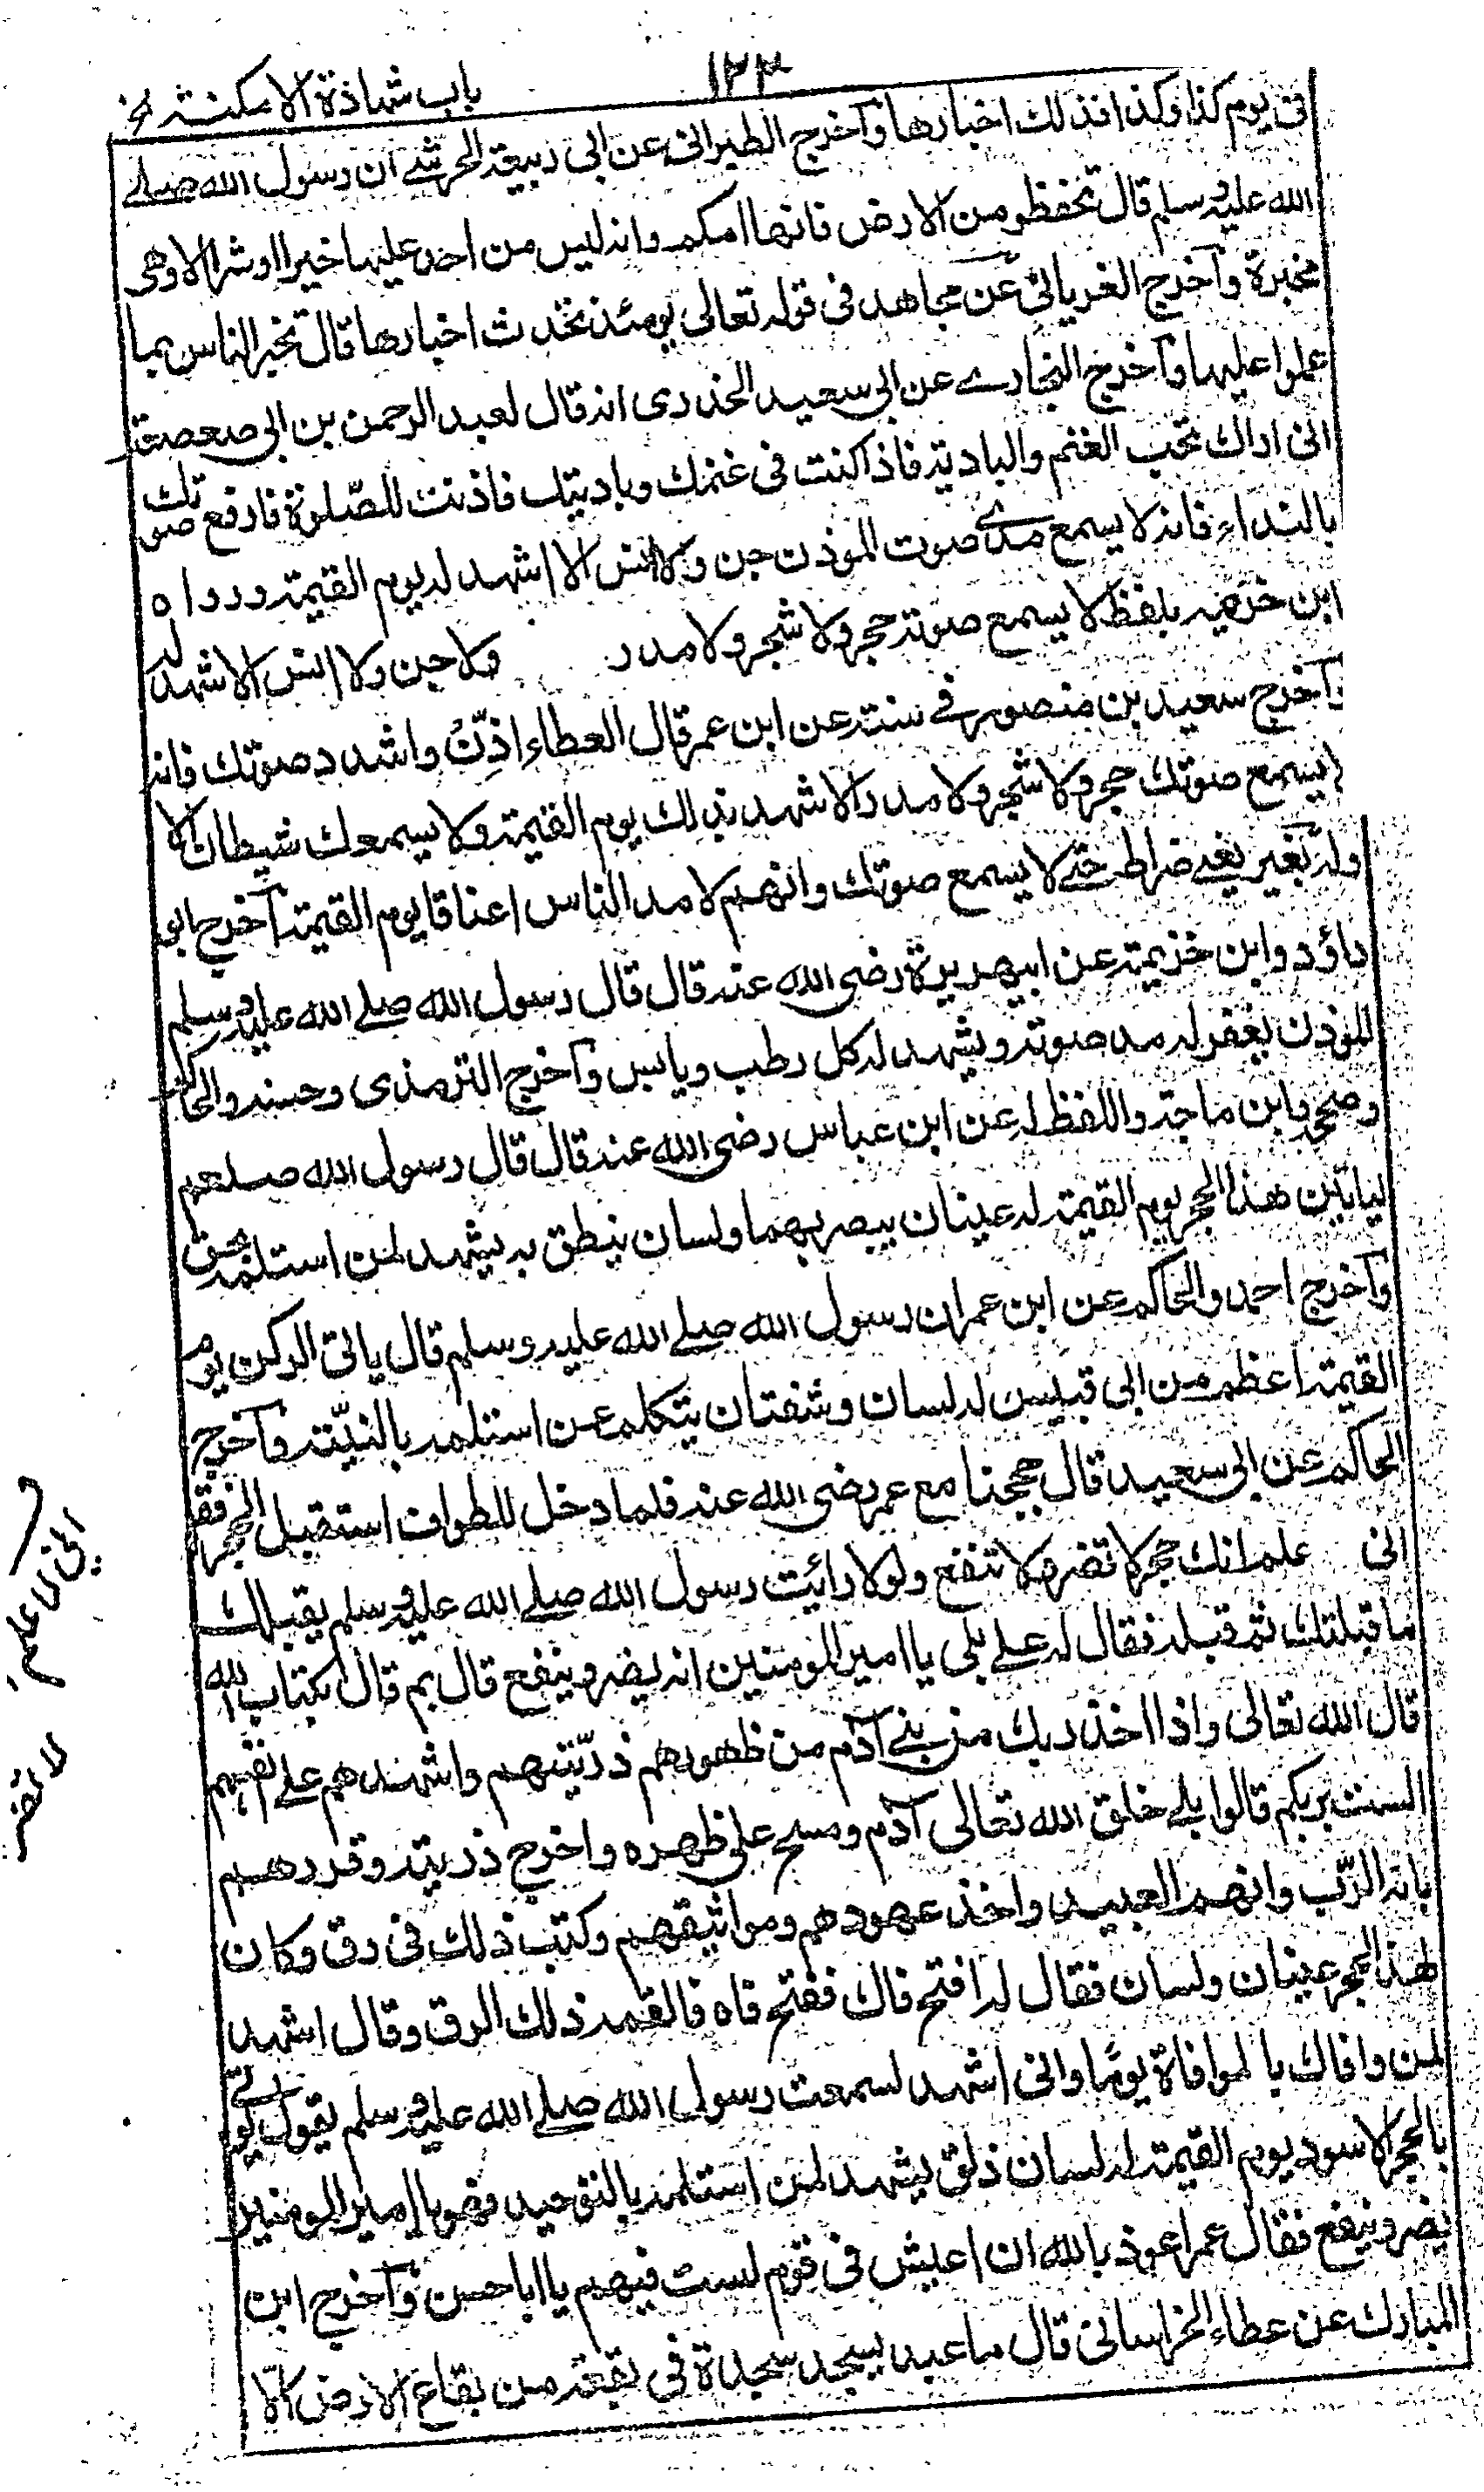 ١٢٣
باب شهادة الامكنة الخ
فى يوم كذا وكذا فذلك اخبارها وآخرج الطبرانى عن ابى ربيعة الحرشے ان رسول الله صلے
الله عليه وسلم قال تحفظو من الارض فانها امكم وانه ليس من احد عليها خيرا او شرا الا وهى
مخبرة وآخرج الفريابى عن مجاهد فى قوله تعالى يومئذ تحدث اخبارها قال تخبر الناس بما
عملوا عليها وآخرج البخارے عن ابى سعيد الخدرى انه قال لعبد الرحمن بن ابى صعصعة
انى اراك تحب الغنم والبادية فاذا كنت فى غنمك وباديتك فاذنت للصّلوة فارفع صوتك
بالنداء فانه لا يسمع مدے صوت الموذن جن ولا انس الا اشهد له يوم القيمة ورواه
ابن خزيمه بلفظ لا يسمع صوته حجر ولا شجر ولا مدر ولا جن ولا انس الا شهد له
وآخرج سعيد بن منصور فے سننه عن ابن عمر قال العطاء اذِّن واشدد صوتك فانه
لا يسمع صوتك حجر ولا شجر ولا مدر الا شهد بذلك يوم القيمة ولا يسمعوك شيطان الا
وله بعير يعنے ضراط حتے لا يسمع صوتك وانهم لا مد الناس اعناقا يوم القيمة آخرج ابو
داؤد وابن خزيمة عن ابيهريرة رضى الله عنه قال قال رسول الله صلے الله عليه وسلم
الموذن يغفر له مد صوته ويشهد له كل رطب ويابس وآخرج الترمذى وحسنه والحاكم
وصححه وابن ماجة واللفظ له عن ابن عباس رضى الله عنه قال قال رسول الله صلعم
لياتين هذا الحجر يوم القيمة له عينان يبصر بهما ولسان ينطق به يشهد لمن استلمه بحق
وآخرج احمد والحاكم عن ابن عمر ان رسول الله صلے الله عليه وسلم قال ياتى الركن يوم
القيمة اعظم من ابى قبيس له لسان وشفتان يتكلم عن استلمه بالنيّة وآخرج
الحاكم عن ابى سعيد قال حججنا مع عمر رضى الله عنه فلما دخل للطواف استقبل الحجر فقال
انى علم انك حجر لا تضر ولا تنفع ولولا رائيت رسول الله صلے الله عليه وسلم يقبلك
ما قبلتك ثم قبله فقال له علے بلى يا امير المومنين انه يضر وينفع قال بم قال بكتاب الله
قال الله تعالى واذا اخذ ربك من بنے آدم من ظهورهم ذريّتهم واشهدهم علے انفسهم
الست بربكم قالوا بلے خلق الله تعالى آدم ومسح على ظهره واخرج ذريته وقررهم
بانه الرّب وانهم العبيد واخذ عهودهم ومواثيقهم وكتب ذلك فى رق وكان
لهذا الحجر عينان ولسان فقال له افتح فاك ففتح فاه فالقمه ذلك الرق وقال اشهد
لمن وافاك بالموافاة يوما وانى اشهد لسمعت رسول الله صلے الله عليه وسلم يقول يوتے
بالحجر الاسود يوم القيمة له لسان ذلق يشهد لمن استلمه بالتوحيد فهو يا امير المومنين
يضر وينفع فقال عمر اعوذ بالله ان اعيش فى قوم لست فيهم يا ابا حسن وآخرج ابن
المبارك عن عطاء الخراسانى قال ما عبد يسجد سجدة فى بقعة من بقاع الارض الّا
انى لا علم
لا تضر